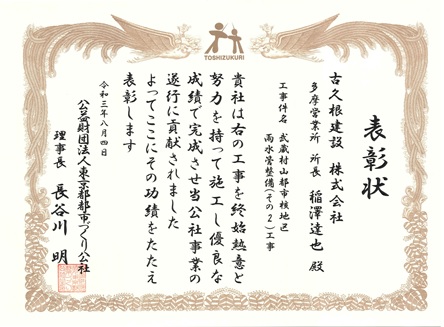 TOSHIZUKURI
表彰状
古久根建設 株式会社
多摩営業所 所長 稲澤達也 殿
工事件名 武蔵村山都市核地区
雨水管整備(その2)工事
貴社は右の工事を終始熱意と
努力を持って施工し優良な
成績で完成させ当公社事業の
遂行に貢献されました
よってここにその功績をたたえ
表彰します
令和三年八月四日
公益財団法人東京都都市づくり公社
理事長 長谷川 明